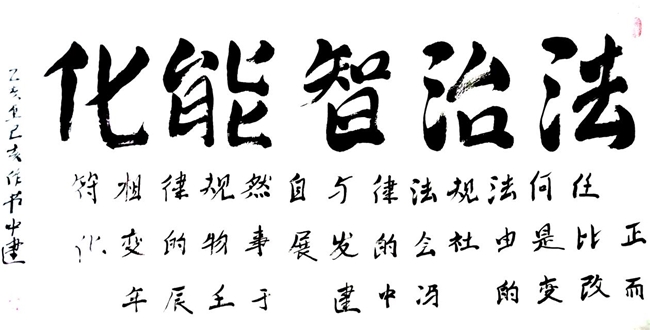 法治智能化
任何法规法律与自然规律相符
正比是由社会的发展事物的变化
而改变的 冯中建于壬辰年